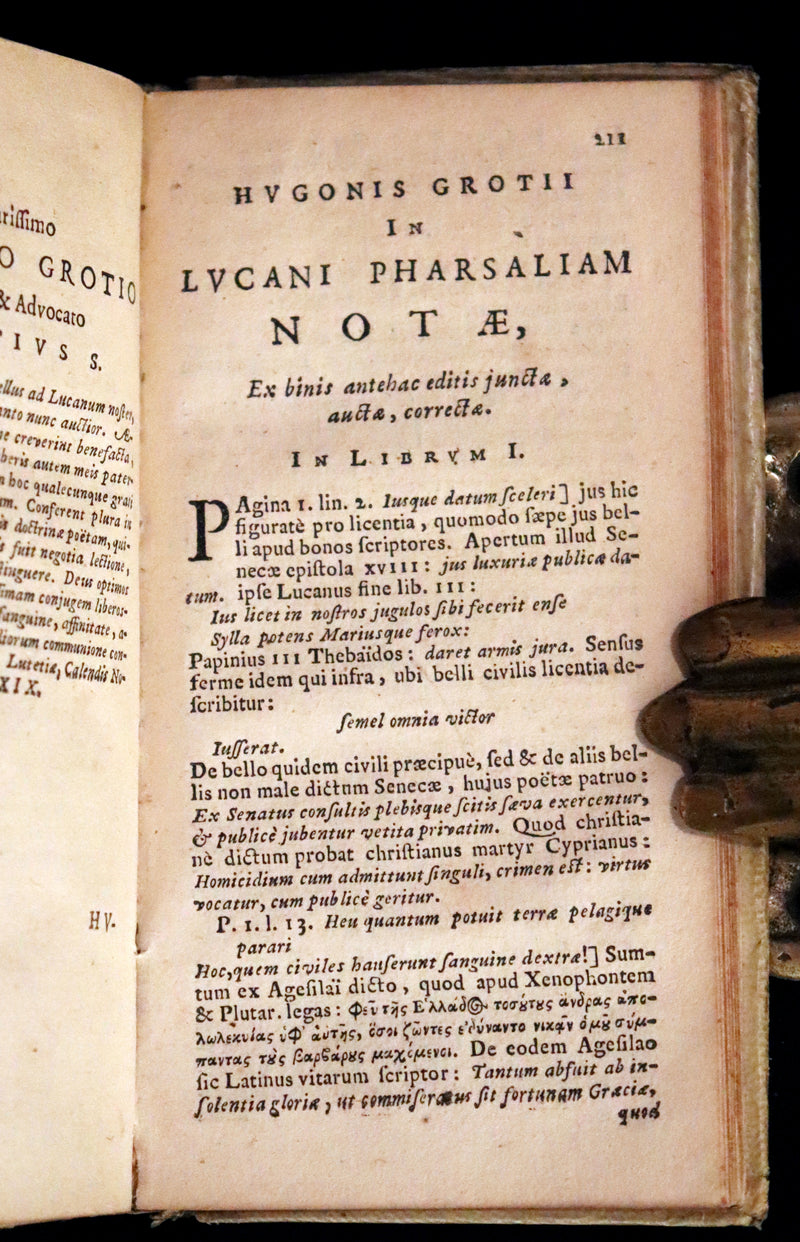 rissimo
O GROTIO
& Advocato
TIVS S.
ellus ad Lucanum noster,
anto nunc auctior. Æ-
e creverint benefacta,
beris autem meis pater-
n hoc qualecunque grati
m. Conferent plura in
is doctrinæ poëtam, qui-
s fuit negotia lectione,
tinguere. Deus optimus
imam conjugem liberos-
sanguine, affinitate, a-
liorum communione con-
Lutetiæ, Calendis No-
XIX.
HV-
211
HVGONIS GROTII
IN
LVCANI PHARSALIAM
NOTÆ,
Ex binis antehac editis junctæ,
auctæ, correctæ.
IN LIBRVM I.
PAgina 1. lin. 2. Iusque datum ſceleri] jus hic
figuratè pro licentia, quomodo ſæpe jus bel-
li apud bonos ſcriptores. Apertum illud Se-
necæ epiſtola XVIII: jus luxuriæ publicæ da-
tum. ipſe Lucanus fine lib. III:
Ius licet in noſtros jugulos ſibi fecerit enſe
Sylla potens Mariusque ferox:
Papinius III Thebaïdos: daret armis jura. Senſus
ferme idem qui infra, ubi belli civilis licentia de-
ſcribitur:
ſemel omnia victor
Iuſſerat.
De bello quidem civili præcipuè, ſed & de aliis bel-
lis non male dictum Senecæ, hujus poëtæ patruo:
Ex Senatus conſultis plebisque ſcitis ſæva exercentur,
& publicè jubentur vetita privatim. Quod chriſtia-
nè dictum probat chriſtianus martyr Cyprianus:
Homicidium cum admittunt ſinguli, crimen eſt: virtus
vocatur, cum publicè geritur.
P. 1. l. 13. Heu quantum potuit terræ pelagique
parari
Hoc, quem civiles hauſerunt ſanguine dextræ!] Sum-
tum ex Ageſilaï dicto, quod apud Xenophontem
& Plutar. legas: Φεῦ τῆς Ἑλλάδος τοσούτους ἄνδρας ἀπο-
λωλεκυίας ὑφ' αὑτῆς, ὅσοι ζῶντες ἐδύναντο νικᾷν ὁμοῦ σύμ-
παντας τοὺς βαρβάρους μαχόμενοι. De eodem Ageſilao
ſic Latinus vitarum ſcriptor: Tantum abfuit ab in-
ſolentia gloriæ, ut commiſeratus ſit fortunam Græciæ,
quod